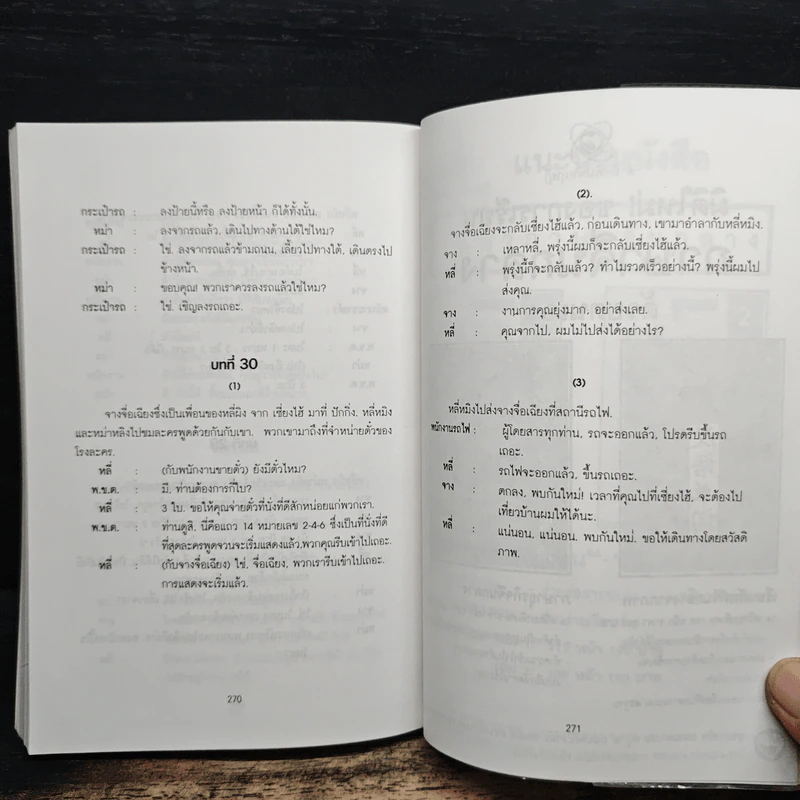 กระเป๋ารถ : ลงป้ายนี้หรือ ลงป้ายหน้า ก็ได้ทั้งนั้น.
หม่า : ลงจากรถแล้ว, เดินไปทางด้านใต้ใช่ไหม?
กระเป๋ารถ : ใช่. ลงจากรถแล้วข้ามถนน, เลี้ยวไปทางใต้, เดินตรงไป
ข้างหน้า.
หม่า : ขอบคุณ! พวกเราควรลงรถแล้วใช่ไหม?
กระเป๋ารถ : ใช่. เชิญลงรถเถอะ.
บทที่ 30
(1)
จางจื่อเฉียงซึ่งเป็นเพื่อนของหลี่ผิง จาก เซี่ยงไฮ้ มาที่ ปักกิ่ง. หลี่หมิง
และหม่าหลิงไปชมละครพูดด้วยกันกับเขา. พวกเขามาถึงที่จำหน่ายตั๋วของ
โรงละคร.
หลี่ : (กับพนักงานขายตั๋ว) ยังมีตั๋วไหม?
พ.ข.ต. : มี, ท่านต้องการกี่ใบ?
หลี่ : 3 ใบ. ขอให้คุณจ่ายตั๋วที่นั่งที่ดีสักหน่อยแก่พวกเรา.
พ.ข.ต. : ท่านดูสิ, นี่คือแถว 14 หมายเลข 2-4-6 ซึ่งเป็นที่นั่งที่ดี
ที่สุดละครพูดจวนจะเริ่มแสดงแล้ว,พวกคุณรีบเข้าไปเถอะ.
หลี่ : (กับจางจื่อเฉียง) ใช่, จื่อเฉียง, พวกเรารีบเข้าไปเถอะ.
การแสดงจะเริ่มแล้ว.
270
(2).
จางจื่อเฉียงจะกลับเซี่ยงไฮ้แล้ว, ก่อนเดินทาง, เขามาอำลากับหลี่หมิง.
จาง : เหลาหลี่, พรุ่งนี้ผมก็จะกลับเซี่ยงไฮ้แล้ว.
หลี่ : พรุ่งนี้ก็จะกลับแล้ว? ทำไมรวดเร็วอย่างนี้? พรุ่งนี้ผมไป
ส่งคุณ.
จาง : งานการคุณยุ่งมาก, อย่าส่งเลย.
หลี่ : คุณจากไป, ผมไม่ไปส่งได้อย่างไร?
(3)
หลี่หมิงไปส่งจางจื่อเฉียงที่สถานีรถไฟ.
พนักงานรถไฟ : ผู้โดยสารทุกท่าน, รถจะออกแล้ว, โปรดรีบขึ้นรถ
เถอะ.
หลี่ : รถไฟจะออกแล้ว, ขึ้นรถเถอะ.
จาง : ตกลง, พบกันใหม่! เวลาที่คุณไปที่เซี่ยงไฮ้, จะต้องไป
เที่ยวบ้านผมให้ได้นะ.
หลี่ : แน่นอน, แน่นอน. พบกันใหม่. ขอให้เดินทางโดยสวัสดิ
ภาพ.
271